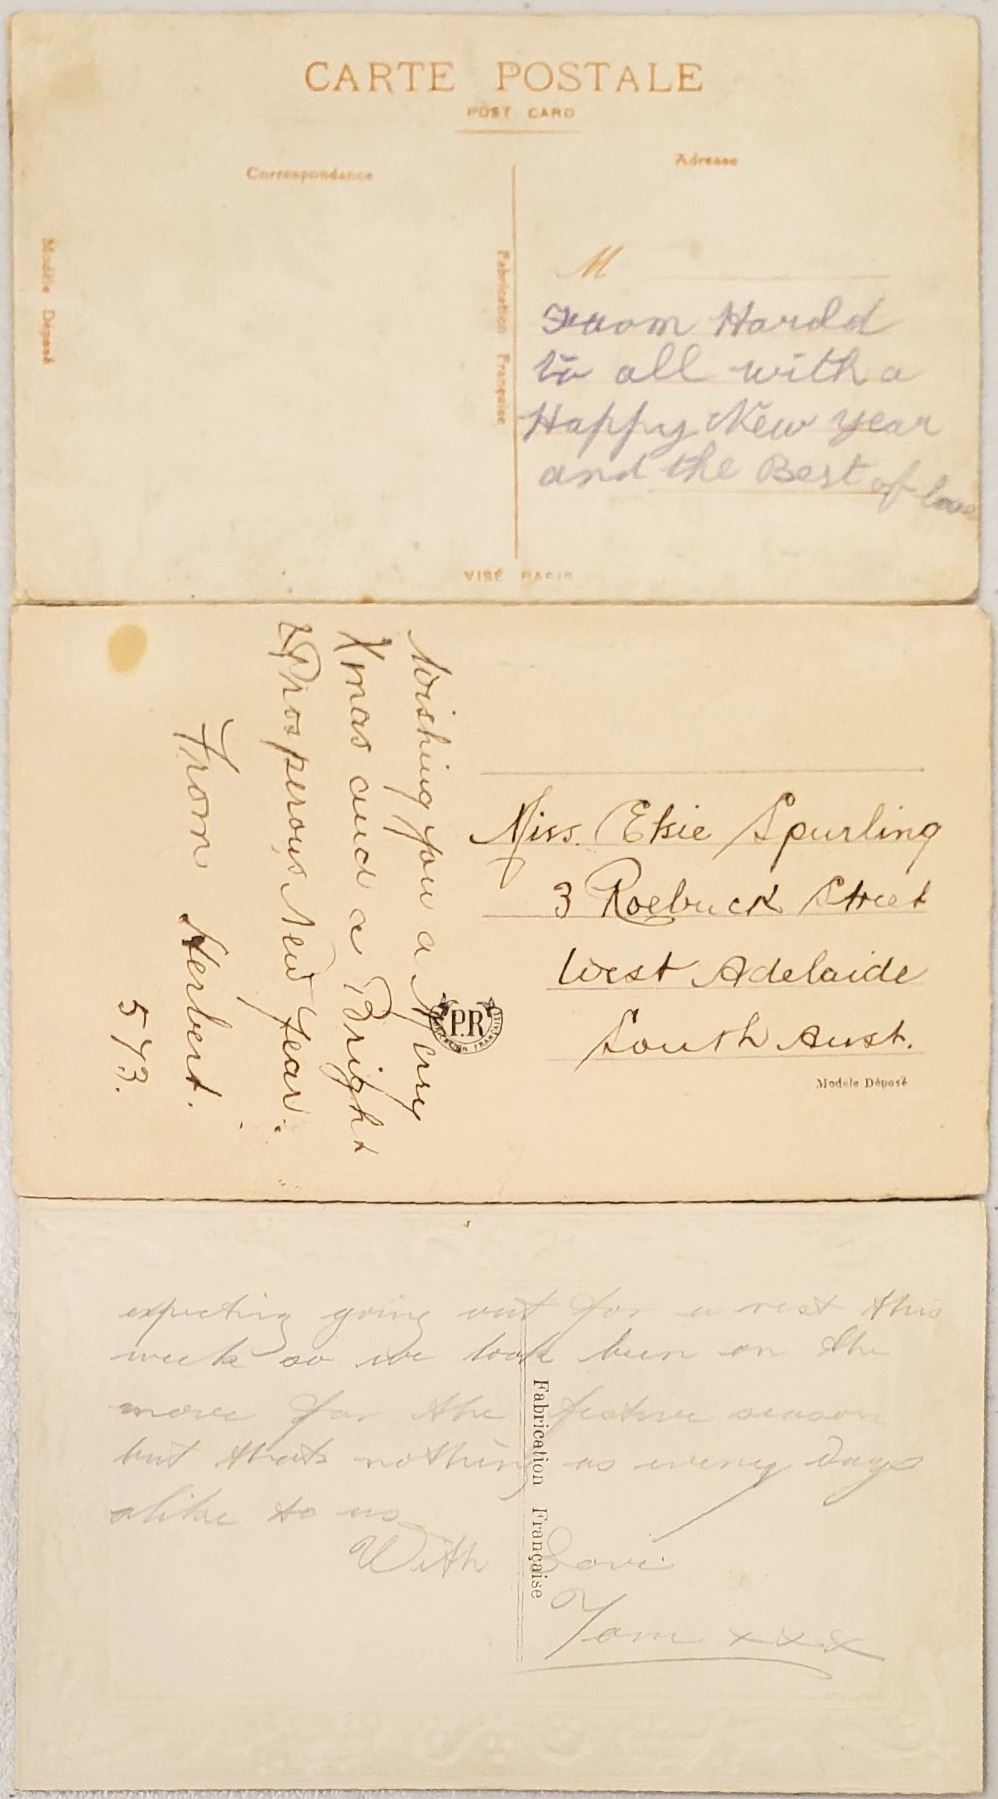 CARTE POSTALE
POST CARD
Correspondance
Adresse
Modèle Déposé
Fabrication Française
M
From Harold
to all with a
Happy New year
and the Best of love
VISÉ PARIS
Wishing you a Merry
Xmas and a Bright
& Prosperous New Year.
From Herbert.
573.
Miss. Elsie Spurling
3 Roebuck Street
West Adelaide
South Aust.
P.R
FABRICATION FRANÇAISE
Modèle Déposé
expecting going out for a rest this
week so we look been on the
move for the festive season
but thats nothing as every days
alike to us
With Love
Tom xxx
Fabrication Française